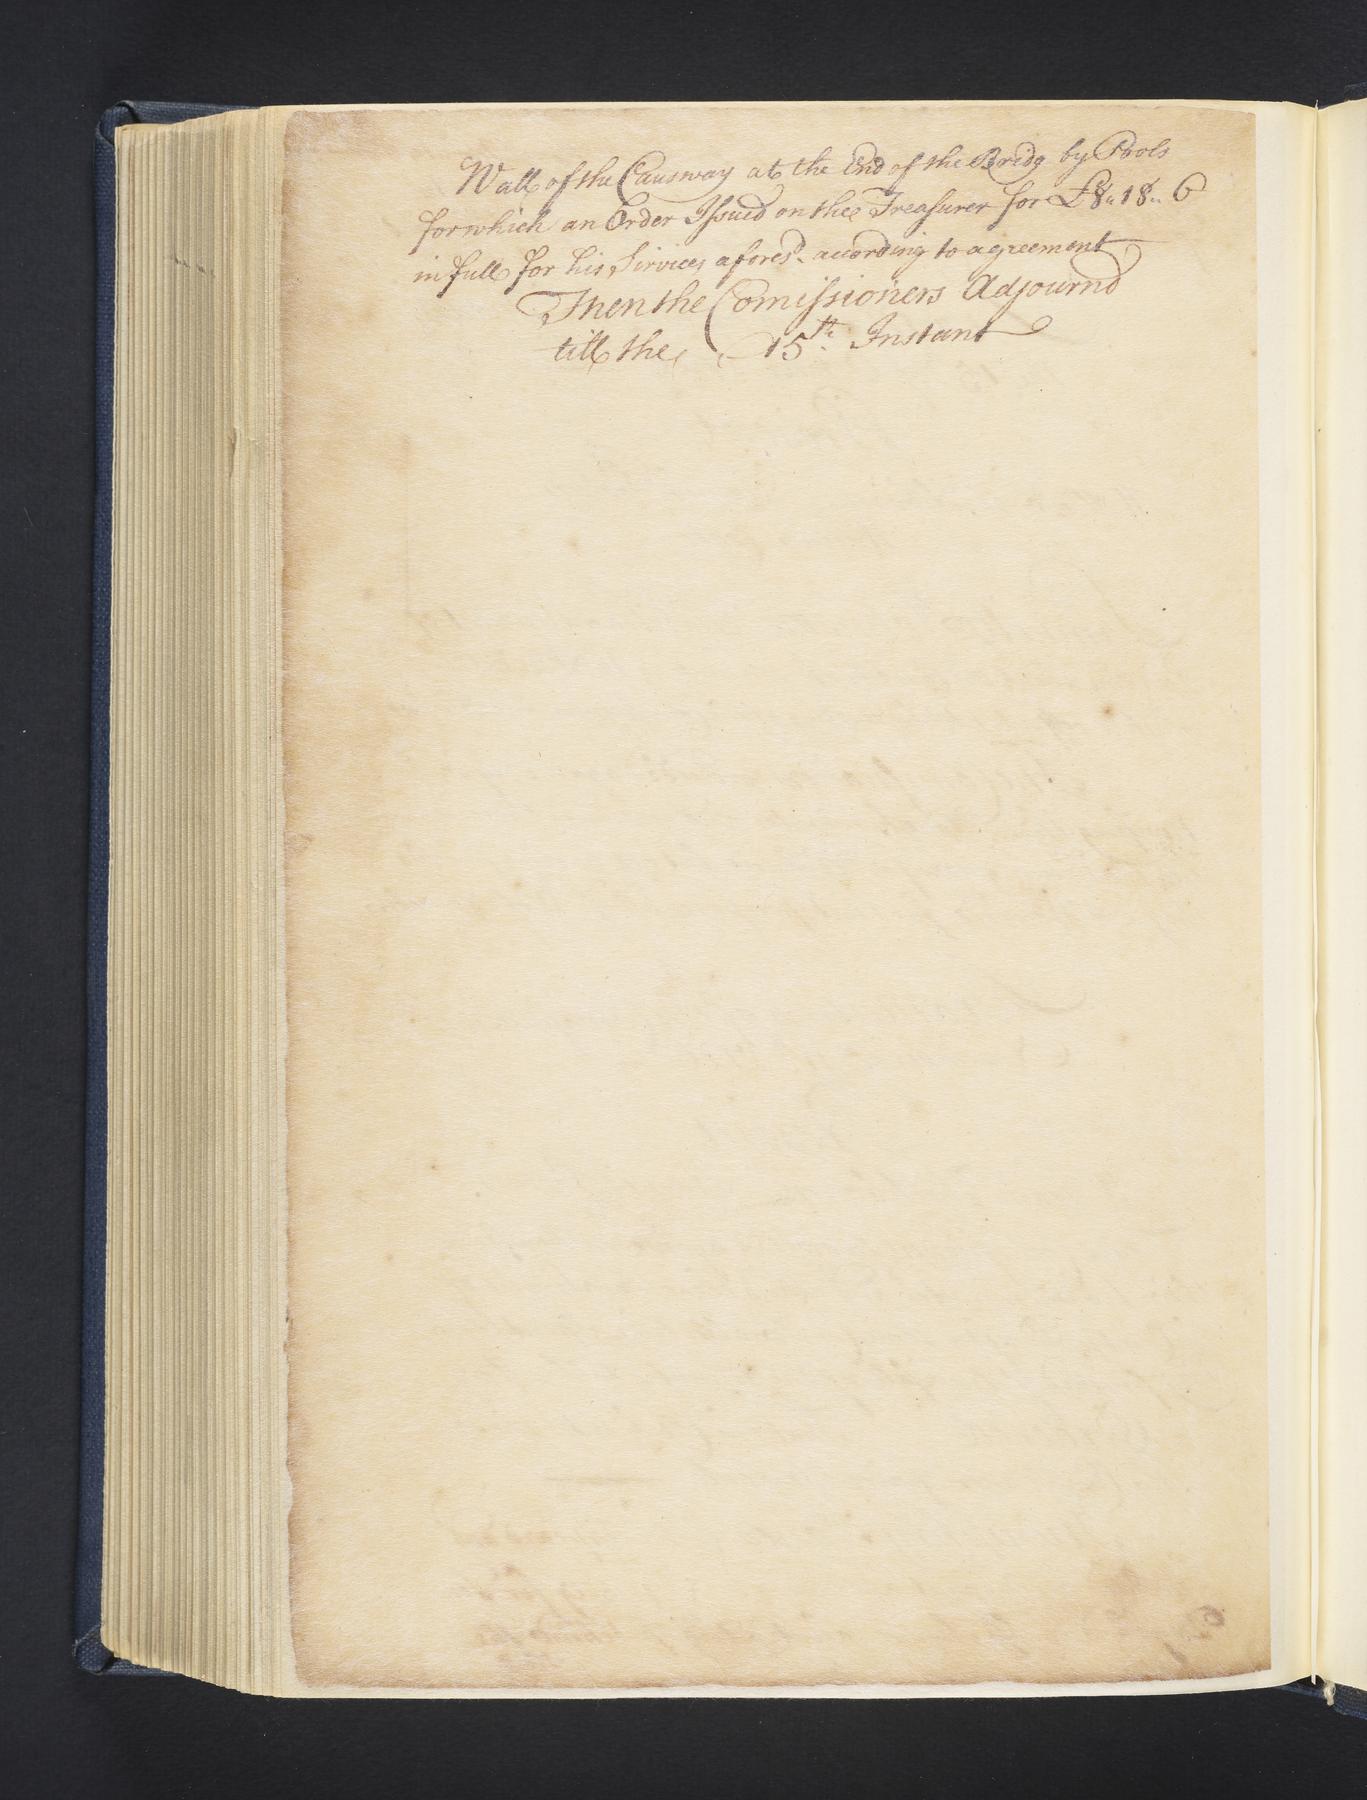 Wall of the Causway at the End of the Bridg by Pools
for which an Order Issued on the Treasurer for £8"18"6
in full for his Services afores.d according to agreement
Then the Comissioners Adjournd
till the 15.th Instant